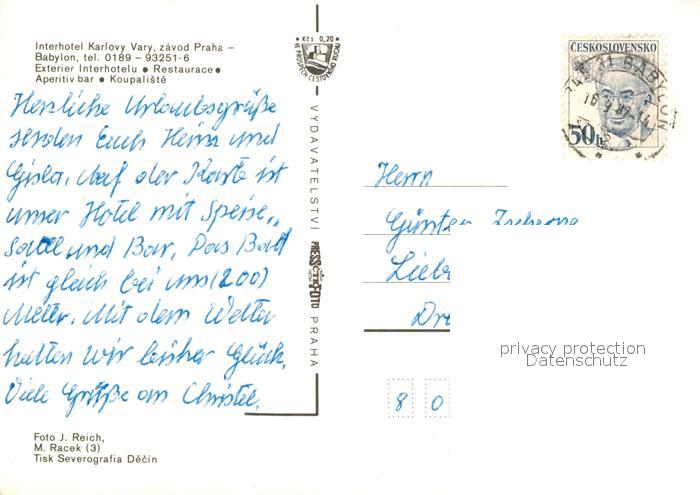 Interhotel Karlovy Vary, závod Praha –
Babylon, tel. 0189 – 93251-6
Exterier Interhotelu ● Restaurace ●
Aperitiv bar ● Koupaliště
Herzliche Urlaubsgrüße
senden Euch Heinz und
Gisla. Auf der Karte ist
unser Hotel mit Speise„
saal und Bar. Das Bad
ist gleich bei uns (200)
Meter. Mit dem Wetter
hatten wir bisher Glück.
Viele Grüße an Christel.
Foto J. Reich,
M. Racek (3)
Tisk Severografia Děčín
Kčs 0,20
VE PROSPĚCH CESTOVNÍHO RUCHU
VYDAVATELSTVÍ PRESSFOTO PRAHA
ČESKOSLOVENSKO
50h
BABYLON
Herrn
Günter
8 0
privacy protection
Datenschutz